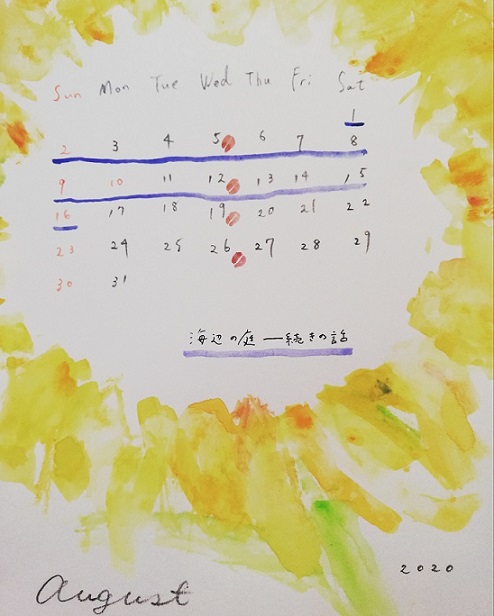 Sun Mon Tue Wed Thu Fri Sat
1
2 3 4 5 6 7 8
9 10 11 12 13 14 15
16 17 18 19 20 21 22
23 24 25 26 27 28 29
30 31
海辺の庭 ー続きの話
2020
August